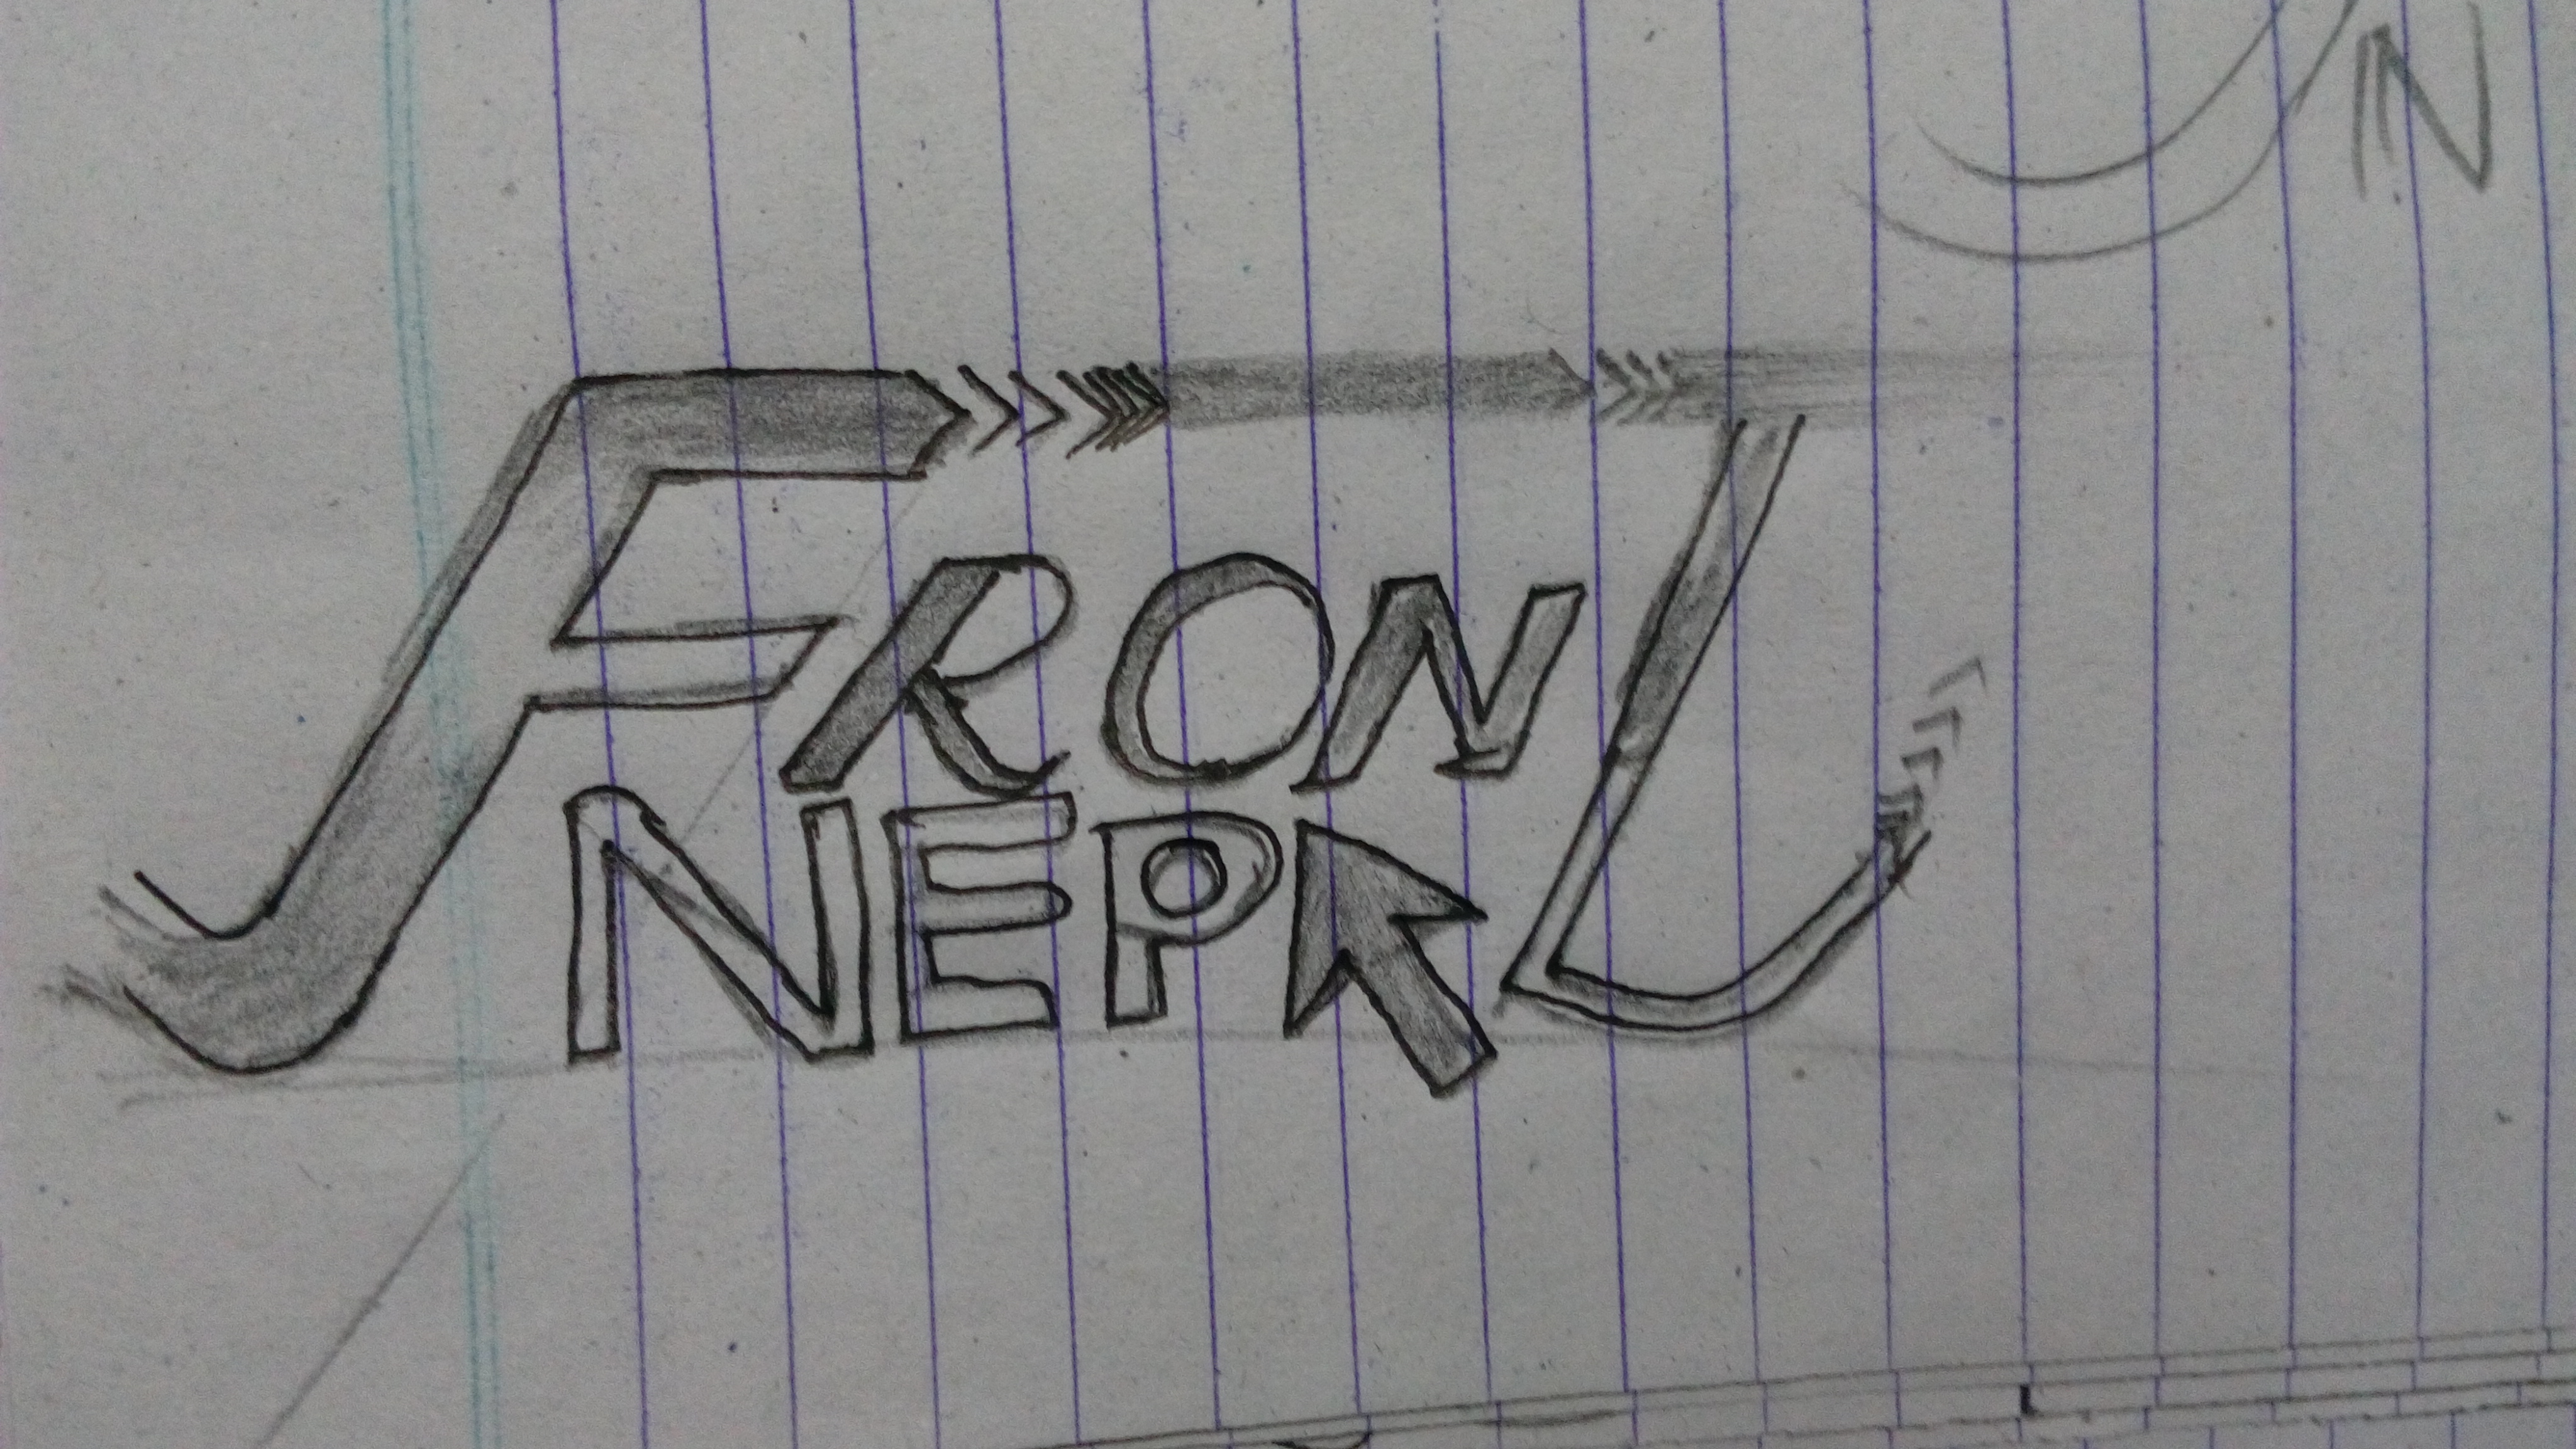 IN
FRONT
NEPAL